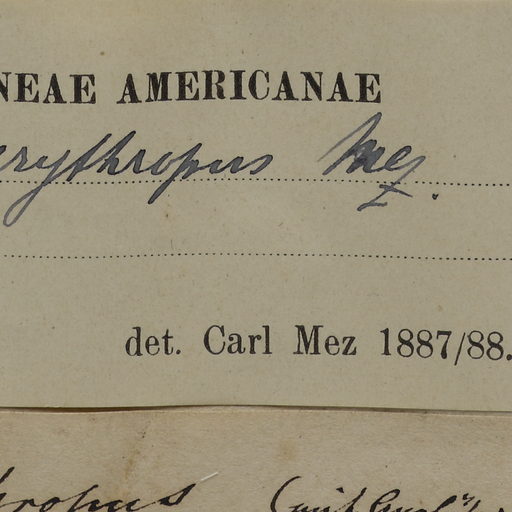 NEAE AMERICANAE
erythropus Mez.
det. Carl Mez 1887/88.
hropus